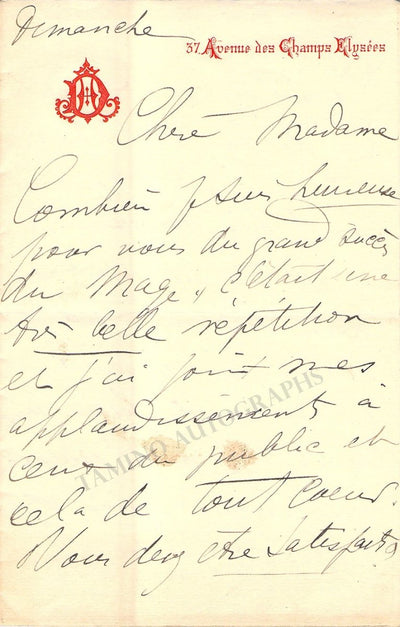 Dimanche
37 Avenue des Champs Elysées
Chère Madame
Combien je suis heureuse
pour vous du grand succès
du Mage, c'était une
très belle répétition
et j'ai joint mes
applaudissements à
ceux du public et
cela de tout coeur.
Vous devez être satisfaits
TAMINO AUTOGRAPHS